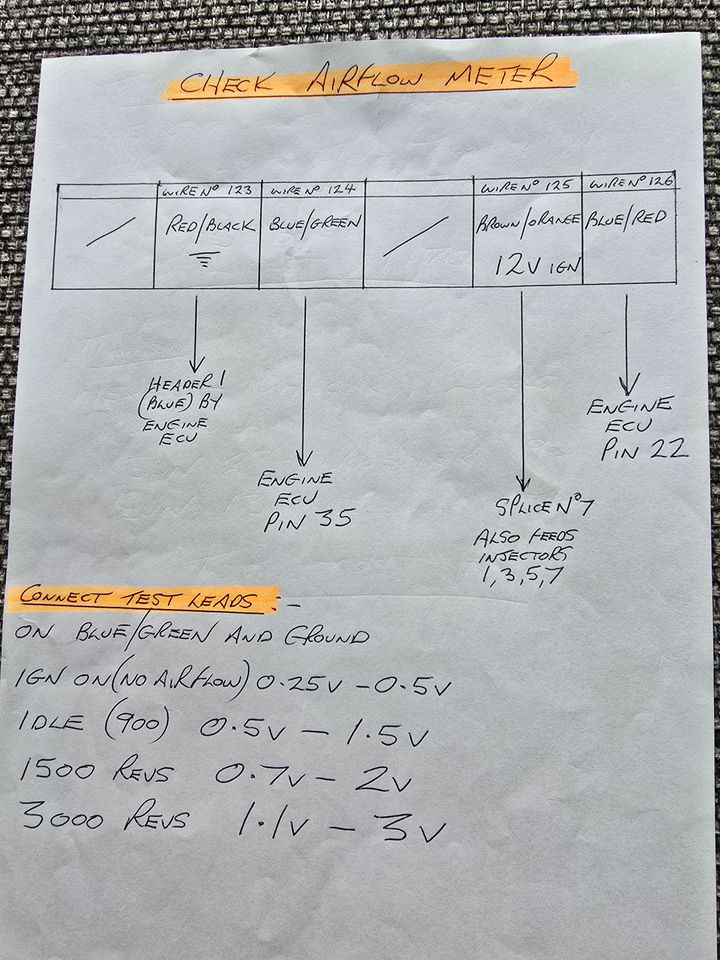 CHECK AIRFLOW METER
WIRE Nº 123
WIRE Nº 124
WIRE Nº 125
WIRE Nº 126
RED/BLACK
BLUE/GREEN
BROWN/ORANGE
12V IGN
BLUE/RED
HEADER 1
(BLUE) BY
ENGINE
ECU
ENGINE
ECU
PIN 35
SPLICE Nº 7
ALSO FEEDS
INJECTORS
1,3,5,7
ENGINE
ECU
PIN 22
CONNECT TEST LEADS :-
ON BLUE/GREEN AND GROUND
IGN ON (NO AIRFLOW) 0.25V - 0.5V
IDLE (900) 0.5V - 1.5V
1500 REVS 0.7V - 2V
3000 REVS 1.1V - 3V